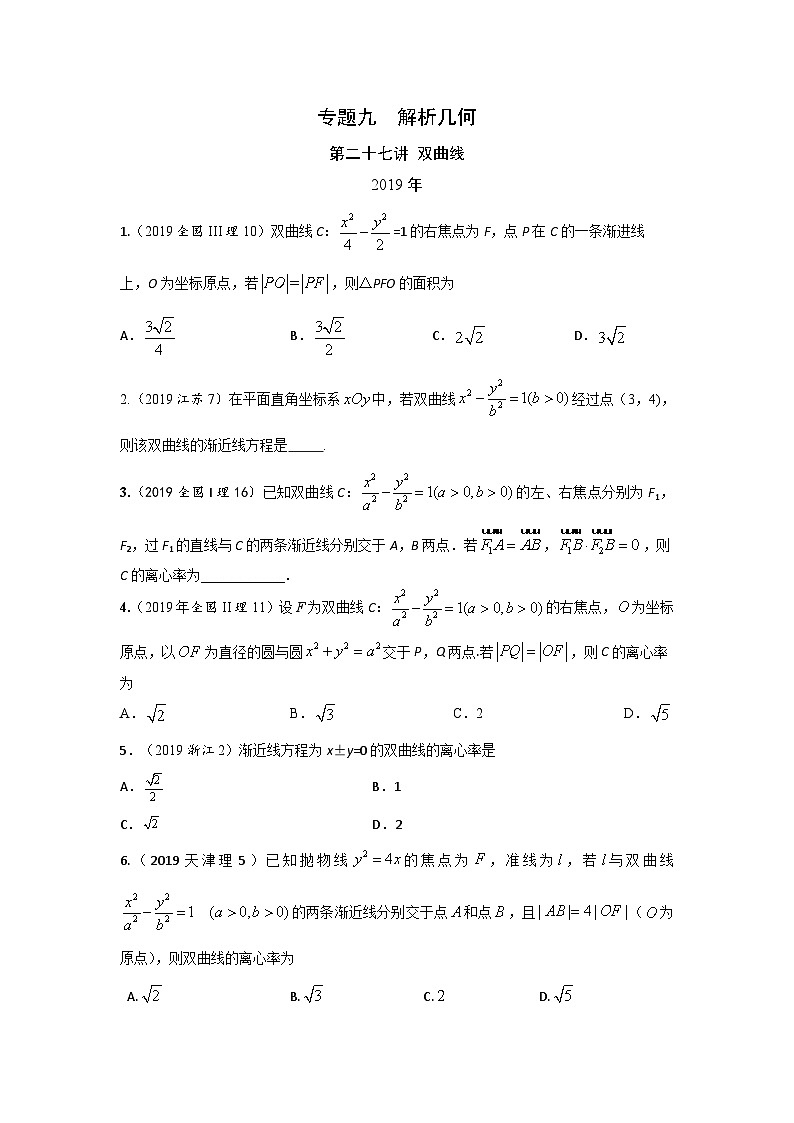 专题九 解析几何
第二十七讲 双曲线
2019 年
1.（2019 全国 III 理 10）双曲线 C：x²/4 − y²/2 =1 的右焦点为 F，点 P 在 C 的一条渐进线
上，O 为坐标原点，若|PO|=|PF|，则△PFO 的面积为
A．3√2/4 B．3√2/2 C．2√2 D．3√2
2.（2019 江苏 7）在平面直角坐标系 xOy 中，若双曲线 x² − y²/b² = 1(b > 0) 经过点（3，4），
则该双曲线的渐近线方程是_____.
3.（2019 全国 I 理 16）已知双曲线 C：x²/a² − y²/b² = 1(a > 0, b > 0) 的左、右焦点分别为 F₁，
F₂，过 F₁ 的直线与 C 的两条渐近线分别交于 A，B 两点．若 F₁A = AB，F₁B · F₂B = 0，则
C 的离心率为____________．
4.（2019 年全国 II 理 11）设 F 为双曲线 C：x²/a² − y²/b² = 1(a > 0, b > 0) 的右焦点，O 为坐标
原点，以 OF 为直径的圆与圆 x² + y² = a² 交于 P，Q 两点.若|PQ| = |OF|，则 C 的离心率
为
A．√2 B．√3 C．2 D．√5
5．（2019 浙江 2）渐近线方程为 x±y=0 的双曲线的离心率是
A．√2/2 B．1
C．√2 D．2
6.（2019 天津理 5）已知抛物线 y² = 4x 的焦点为 F，准线为 l，若 l 与双曲线
x²/a² − y²/b² = 1 (a > 0, b > 0) 的两条渐近线分别交于点 A 和点 B，且| AB |= 4 | OF |（O 为
原点），则双曲线的离心率为
A. √2 B. √3 C. 2 D. √5